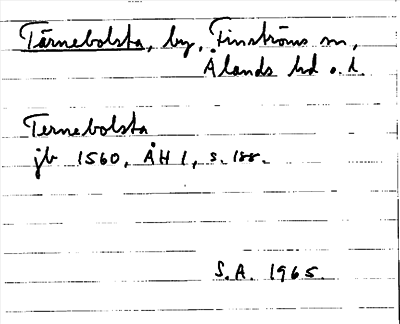 Tärnebolsta, by, Finströms sn,
Ålands hd o. l.
Ternebolsta
jb 1560, ÅH 1, s. 188.
S.A. 1965.